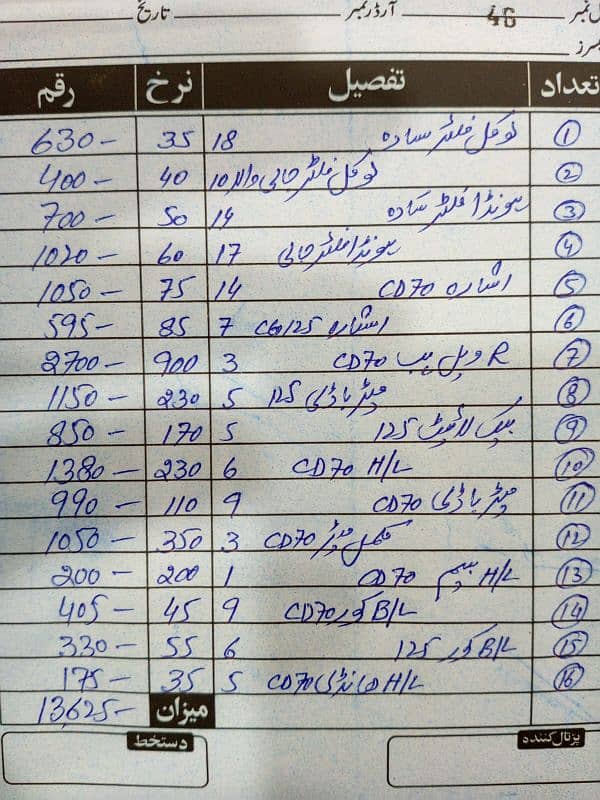 نمبر 46 آرڈر نمبر تاریخ
تعداد تفصیل نرخ رقم
1 لوکل فلٹر سادہ 18 35 630-
2 لوکل فلٹر جالی والا 10 40 400-
3 ہونڈا فلٹر سادہ 14 50 700-
4 ہونڈا فلٹر جالی 17 60 1020-
5 اشارہ CD70 14 75 1050-
6 اشارہ CG125 7 85 595-
7 R ویل ہب CD70 3 900 2700-
8 میٹر باڈی 125 5 230 1150-
9 بیک لائیٹ 125 5 170 850-
10 CD70 H/L 6 230 1380-
11 میٹر باڈی CD70 9 110 990-
12 مکمل میٹر CD70 3 350 1050-
13 H/L CD70 1 200 200-
14 B/L کور CD70 9 45 405-
15 B/L کور 125 6 55 330-
16 H/L CD70 5 35 175-
میزان 13,625-
پڑتال کنندہ دستخط